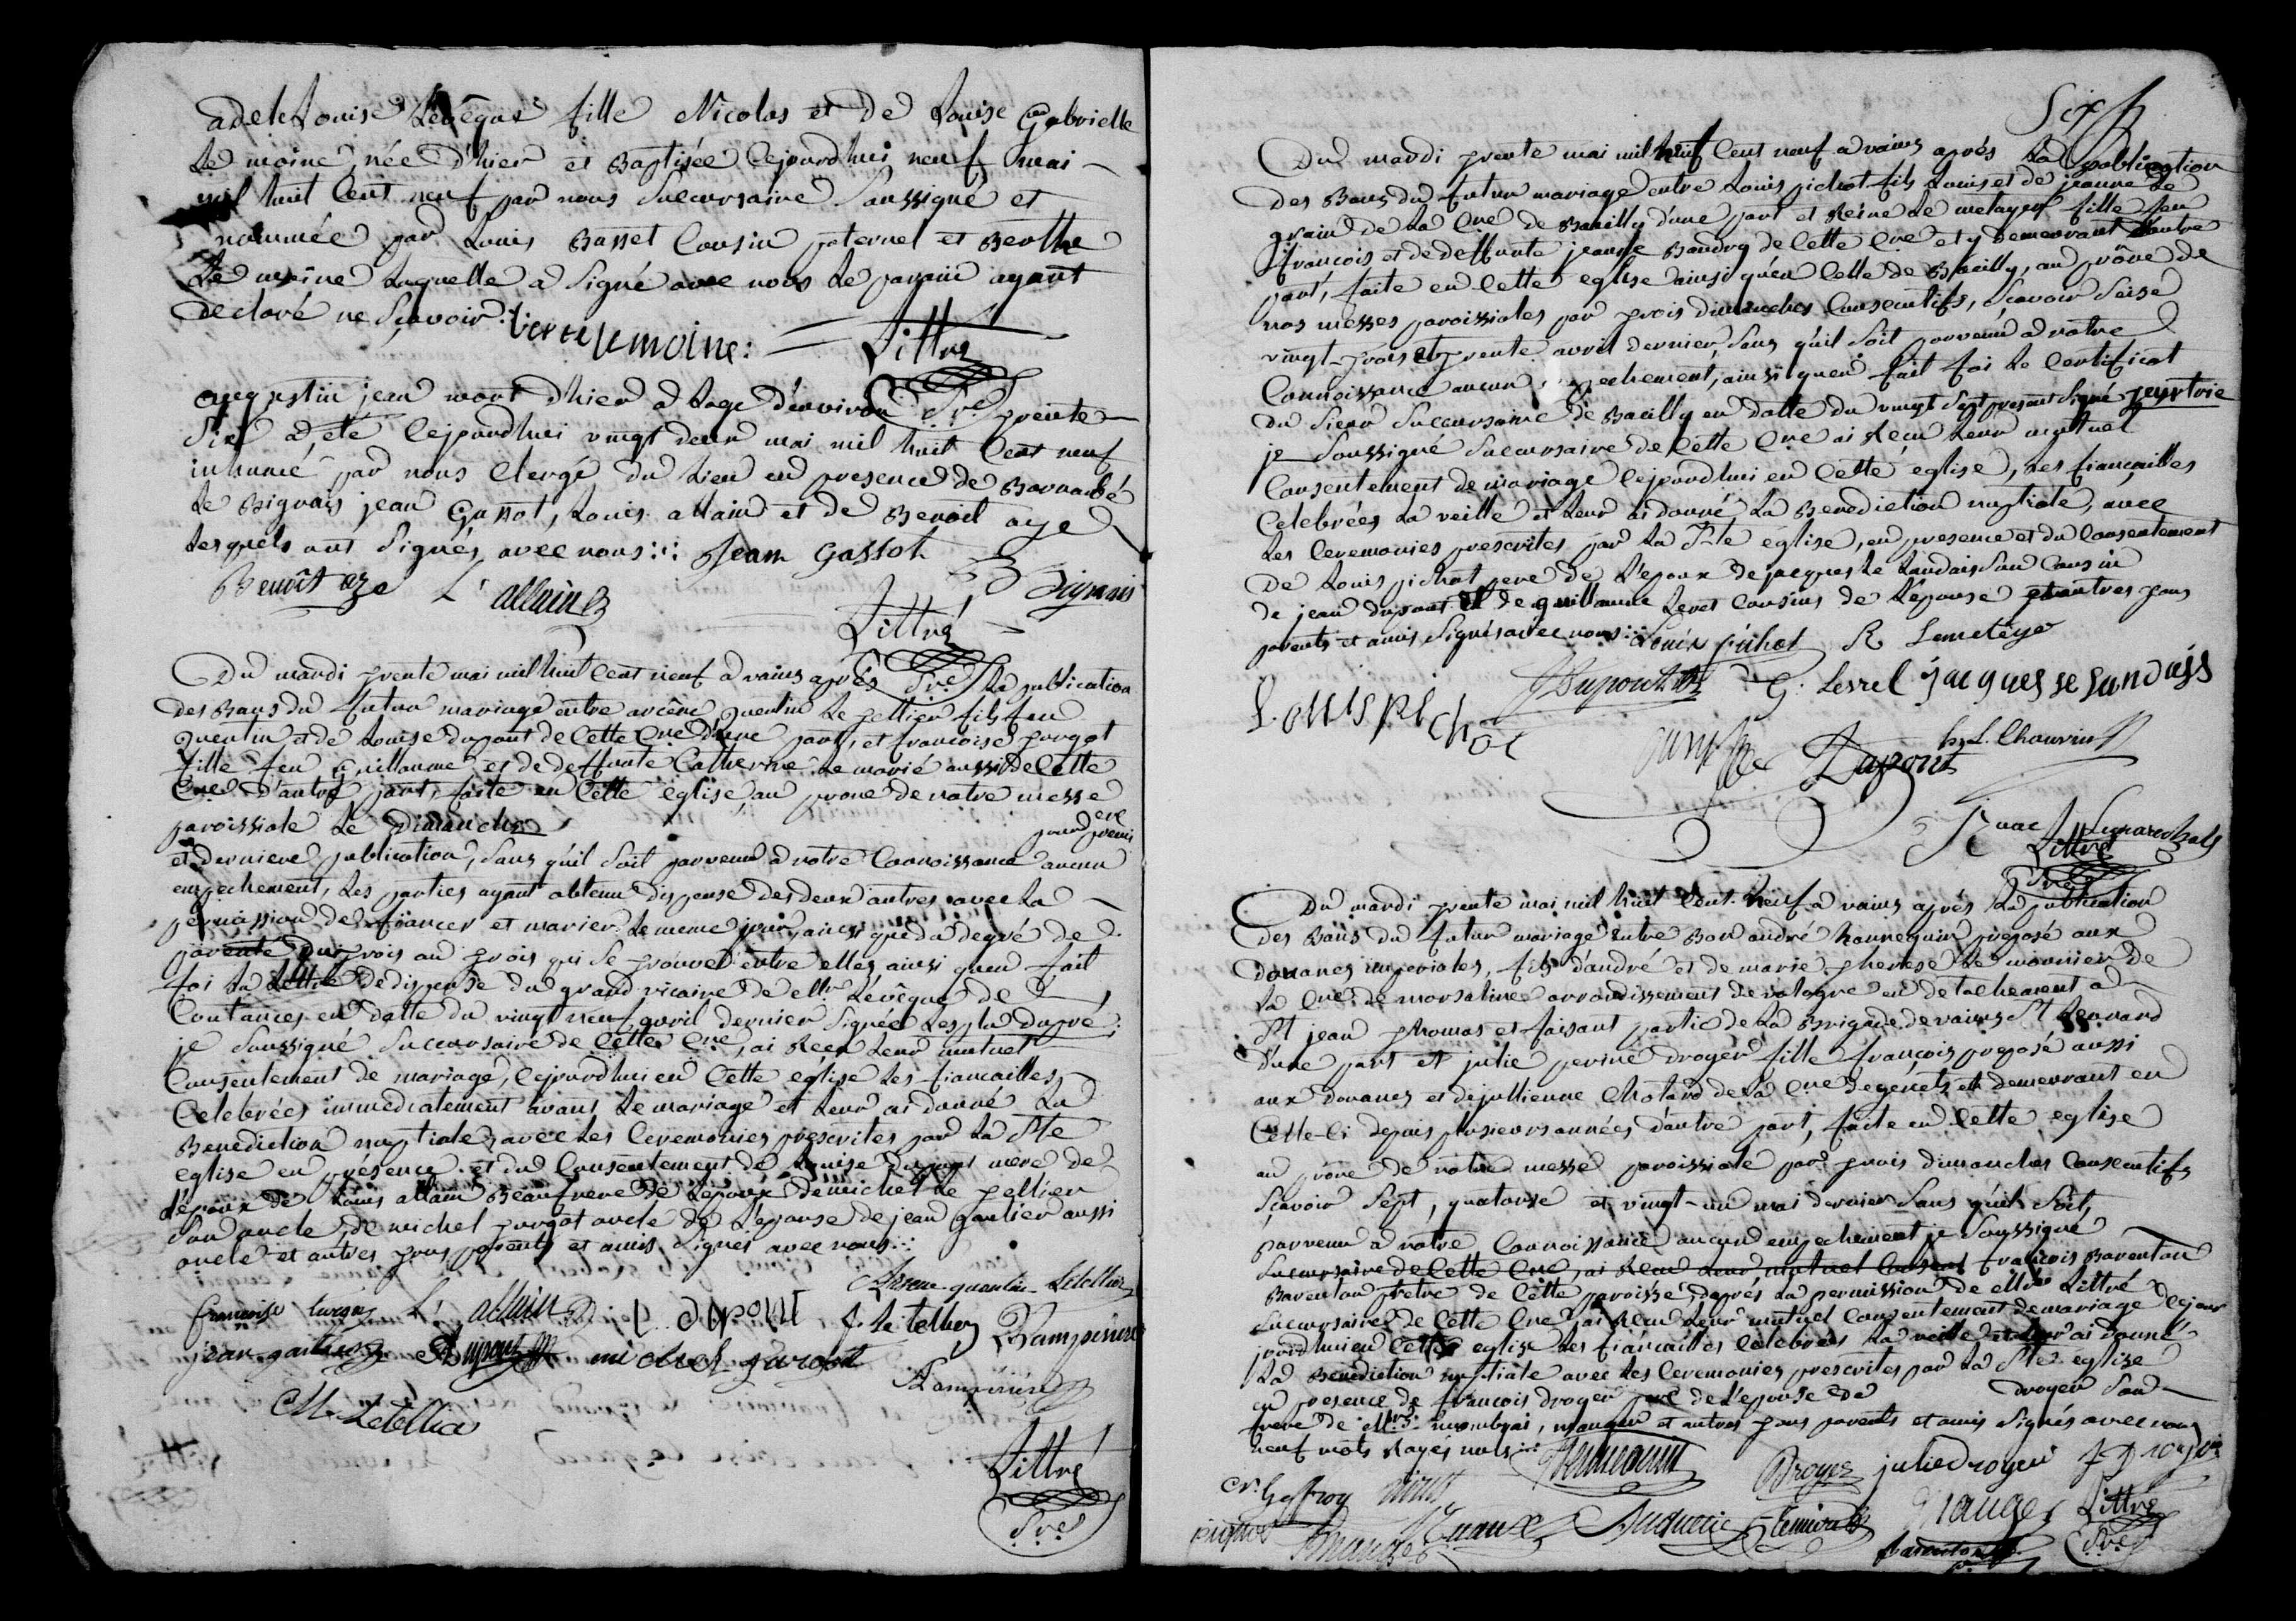 adele Louise Levêque fille Nicolas et de Louise Gabrielle
Le moine née d'hier et Baptisée cejourdhui neuf mai
mil huit Cent neuf par nous Succursaire Soussigné et
nommée par Louis Basset Cousin paternel et Berthe
Le moine laquelle a Signé avec nous le parain ayant
declaré ne Sçavoir
Berte lemoine : Littré
Sre
augustin jean mort d'hier a l'age d'environ trente
Six a été cejourdhui vingt deux mai mil huit Cent neuf
inhumé par nous Clergé du Lieu en presence de Barnabé
Le Bignais jean Gassot, Louis allain et de Benoit aze
lesquels ont Signés avec nous :: Jean Gassot
Benoît aze L. allain B Bignais
Littré
Sre
Du mardi trente mai mil huit Cent neuf a vains après la publication
des Bans du futur mariage entre arcène Quentin Le tellier fils feu
Quentin et de Louise dupont de Cette Cne d'une part, et francoise turgot
fille feu Guillaume et de deffunte Catherine Le marié aussi de Cette
Cne d'autre part, faite en Cette église au prone de notre messe
paroissiale Le Dimanche pour premiere
et derniere publication, Sans qu'il Soit parvenu a notre Connoissance aucun
empechement, les parties ayant obtenu dispense des deux autres avec la
permission de fiancer et marier le meme jour, ainsi que du degré de
parenté du trois au trois qui Se trouve entre elles, ainsi quen fait
foi la Lettre de dispense du grand vicaire de Mgr Lévêque de
Coutances en datte du vingt neuf avril dernier Signée dupré :
je Soussigné Succursaire de Cette Cne, ai Recu Leur mutuel
Consentement de mariage, cejourdhui en Cette église les fiancailles
Celebrées immediatement avant le mariage et leur ai donné La
Benediction nuptiale avec les Ceremonies prescrites par La Ste
eglise en présence et du Consentement de Louise dupont mere de
l'époux de Louis allain Beaufrere de l'epoux de michel Le tellier
Son oncle, de michel turgot oncle de L'epouse de jean gautier aussi
oncle et autres tous parents et amis Signés avec nous ::
Arsene quentin Letellier
francoise turgot L. allain L. dupont f. le tellier
jean gautier Dupont michel turgot
M. Letellier
Littré
Sre
Six
Du mardi trente mai mil huit Cent neuf a vains après la publication
des Bans du futur mariage entre Louis pichot fils Louis et de jeanne Le
grain de La Cne de Bacilly d'une part et Reine Le metayer fille feu
francois et de deffunte jeanne Baudry de Cette Cne et y demeurant d'autre
part, faite en Cette eglise ainsi qu'en Celle de Bacilly, au prône de
nos messes paroissiales par trois dimanches Consecutifs, Sçavoir Seise
vingt-trois et trente avril dernier, Sans qu'il Soit parvenu a notre
Connoissance aucun empechement, ainsi quen fait foi le Certificat
du Sieur Succursaire de Bacilly en datte du vingt Sept present Signé
je Soussigné Succursaire de Cette Cne ai Recu Leur mutuel
Consentement de mariage cejourdhui en Cette église, les fiançailles
Celebrées La veille et Leur ai donné La Benediction nuptiale, avec
les Ceremonies prescrites par La Ste église, en presence et du Consentement
De Louis pichot pere de L'epoux de jacques Le Landais Son Cousin
de jean dupont et de guillaume Cousins de L'epouse et autres tous
parents et amis Signés avec nous :: Louis pichot R Lemeteyer
LOUIS PICHOT J Dupont G. Lesrel jacques le landais
Dupont Chauvin
Littré
Sre
Du mardi trente mai mil huit Cent neuf a vains après La publication
des Bans du futur mariage entre Bon andré hannequin preposé aux
douanes imperiales, fils d'andré et de marie therese Le monnier de
La Cne de morsaline arrondissement de valogne en detachement a
St jean thomas et faisant partie de La Brigade de vains St Leonard
d'une part et julie perine droger fille françois preposé aussi
aux douanes et de jullienne Chotard de La Cne de genets et demeurant en
Celle-Ci depuis plusieurs années d'autre part, faite en Cette eglise
au prone de notre messe paroissiale par trois dimanches Consecutifs
Sçavoir Sept, quatorse et vingt-un mai dernier Sans qu'il Soit
parvenu a notre Connoissance aucun empechement je Soussigné
Succursaire de Cette Cne, ai Recu Leur mutuel Consent francois Barenton
Barenton prêtre de Cette paroisse, d'après La permission de Littré
Succursaire de Cette Cne, ai Recu Leur mutuel Consentement de mariage cejour
jourdhui en Cette eglise les fiancailles Celebrées La veille et leur ai donné
La Benediction nuptiale avec les Ceremonies prescrites par La Ste eglise
en presence de francois droger pere de L'epouse de droger Son
frere de mauger et autres tous parents et amis Signés avec nous
neuf mots Rayés nuls ::
hennequin Droger julie droger
Geffroy Mauger Littré
Barenton Sre